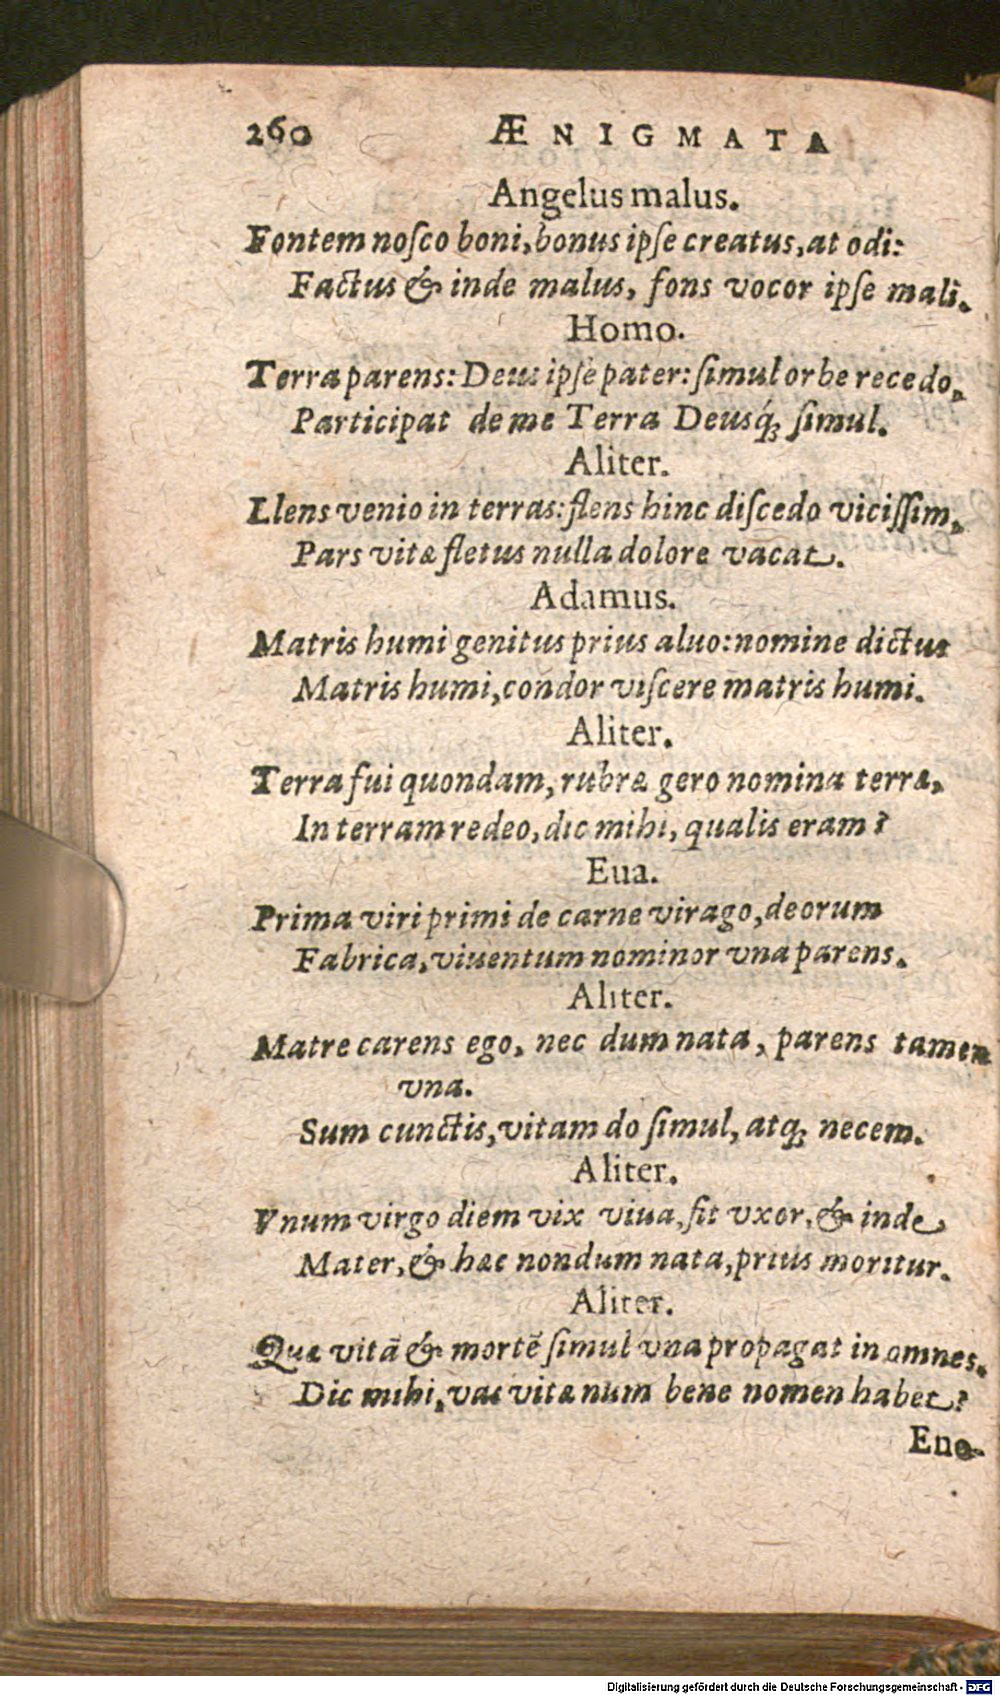 260 ÆNIGMATA
Angelus malus.
Fontem noſco boni, bonus ipſe creatus, at odi:
Factus & inde malus, fons vocor ipſe mali.
Homo.
Terra parens: Deus ipſe pater: ſimul orbe recedo,
Participat de me Terra Deusq́; ſimul.
Aliter.
Llens venio in terras: flens hinc diſcedo viciſſim,
Pars vitæ fletus nulla dolore vacat.
Adamus.
Matris humi genitus prius aluo: nomine dictus
Matris humi, condor viſcere matris humi.
Aliter.
Terra fui quondam, rubræ gero nomina terræ,
In terram redeo, dic mihi, qualis eram?
Eua.
Prima viri primi de carne virago, deorum
Fabrica, viuentum nominor vna parens.
Aliter.
Matre carens ego, nec dum nata, parens tamen
vna.
Sum cunctis, vitam do ſimul, atq; necem.
Aliter.
Vnum virgo diem vix viua, fit vxor, & inde
Mater, & hæc nondum nata, prius moritur.
Aliter.
Quæ vitā & mortē ſimul vna propagat in omnes,
Dic mihi, vas vitæ num bene nomen habet?
Eno-
Digitalisierung gefördert durch die Deutsche Forschungsgemeinschaft - DFG